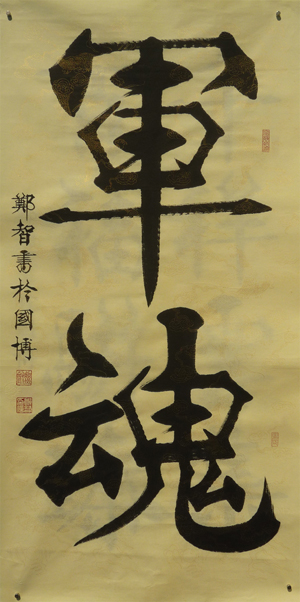 軍魂
鄭智書於國博